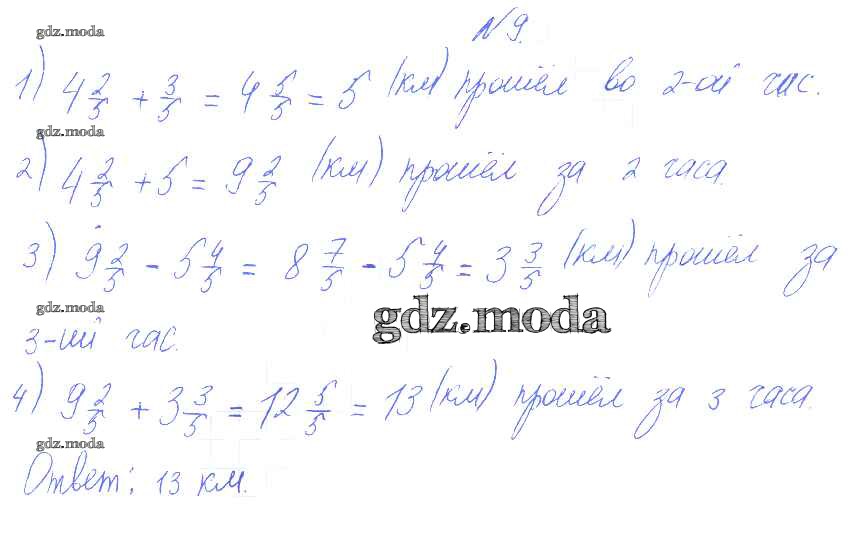 №9.
gdz.moda
1) 4 2/5 + 3/5 = 4 5/5 = 5 (км) прошёл во 2-ой час.
gdz.moda
2) 4 2/5 + 5 = 9 2/5 (км) прошёл за 2 часа.
3) 9 2/5 - 5 4/5 = 8 7/5 - 5 4/5 = 3 3/5 (км) прошёл за
gdz.moda
gdz.moda
3-ий час.
4) 9 2/5 + 3 3/5 = 12 5/5 = 13 (км) прошёл за 3 часа.
gdz.moda
Ответ: 13 км.